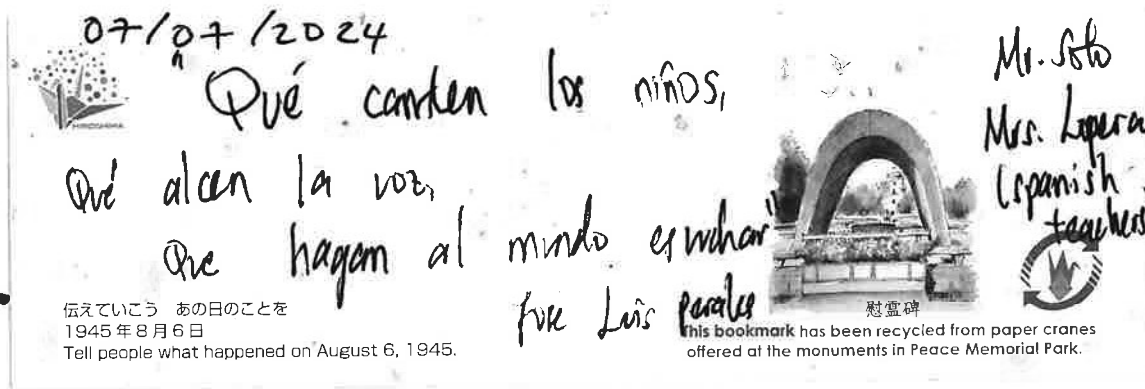 07/07/2024
HIROSHIMA
"Qué canten los niños,
Qué alcen la voz,
Que hagan al mundo escuchar"
Jose Luis Perales
Mr. Soto
Mrs. Lopera
(spanish
teachers
伝えていこう あの日のことを
1945年8月6日
Tell people what happened on August 6, 1945.
慰霊碑
This bookmark has been recycled from paper cranes
offered at the monuments in Peace Memorial Park.